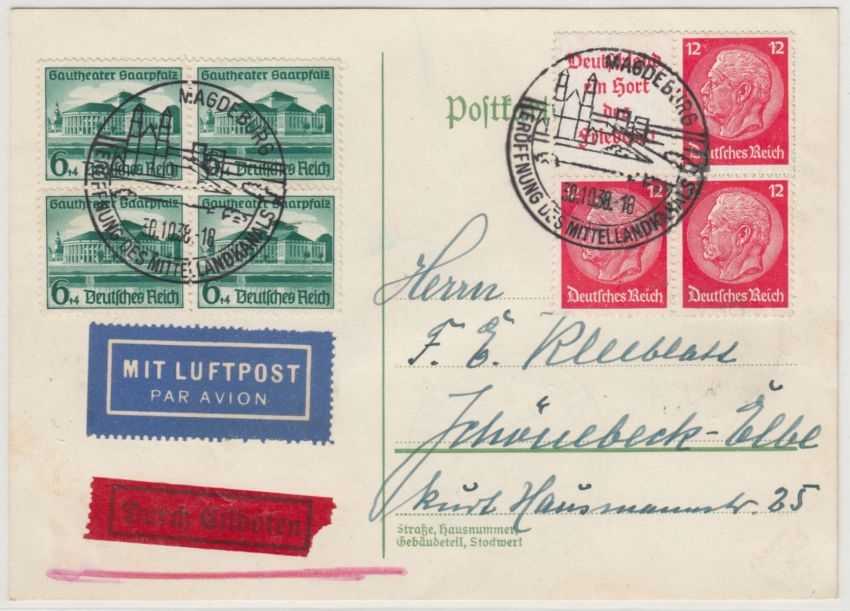 Gautheater Saarpfalz
6+4 Deutsches Reich
Gautheater Saarpfalz
6+4 Deutsches Reich
Gautheater Saarpfalz
6+4 Deutsches Reich
Gautheater Saarpfalz
6+4 Deutsches Reich
MAGDEBURG
30.10.38.-18
ERÖFFNUNG DES MITTELLANDKANALS
Postkarte
Deutschland
ein Hort
des
Friedens
12
Deutsches Reich
12
Deutsches Reich
12
Deutsches Reich
MAGDEBURG
30.10.38.-18
ERÖFFNUNG DES MITTELLANDKANALS
MIT LUFTPOST
PAR AVION
Durch Eilboten
Herrn
F. E. Kleeblatt
Schönebeck-Elbe
Kurt Hausmannstr. 25
Straße, Hausnummer,
Gebäudeteil, Stockwerk